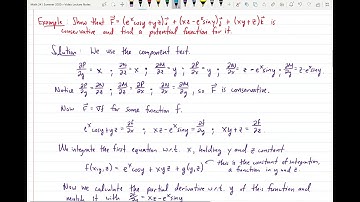 Math 24 - Summer 2020 - Video Lecture Notes
Example: Show that F = (e^x cos y + yz) i + (xz - e^x sin y) j + (xy + z) k is
conservative and find a potential function for it.
Solution: We use the component test.
∂P/∂y = x ; ∂N/∂z = x ; ∂M/∂z = y ; ∂P/∂x = y ; ∂N/∂x = z - e^x sin y ; ∂M/∂y = z - e^x sin y
Notice ∂P/∂y = ∂N/∂z, ∂M/∂z = ∂P/∂x, ∂N/∂x = ∂M/∂y, so F is conservative.
Now F = ∇f for some function f.
e^x cos y + yz = ∂f/∂x ; xz - e^x sin y = ∂f/∂y ; xy + z = ∂f/∂z
We integrate the first equation w.r.t. x, holding y and z constant
f(x,y,z) = e^x cos y + xyz + g(y,z)
this is the constant of integration,
a function in y and z
Now we calculate the partial derivative w.r.t. y of this function and
match it with ∂f/∂y = xz - e^x sin y